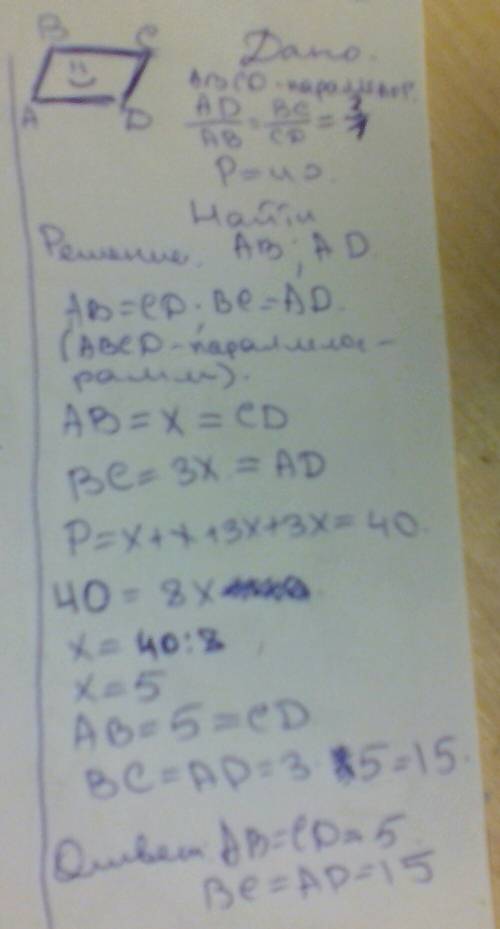 B C
A D
Дано.
ABCD - параллелог.
AD/AB = BC/CD = 3/1
P = 40.
Найти
Решение. AB; AD
AB = CD; BC = AD.
(ABCD - параллелог-
рамм).
AB = X = CD
BC = 3X = AD
P = X + X + 3X + 3X = 40.
40 = 8X
X = 40:8
X = 5
AB = 5 = CD
BC = AD = 3 · 5 = 15.
Ответ AB = CD = 5
BC = AD = 15